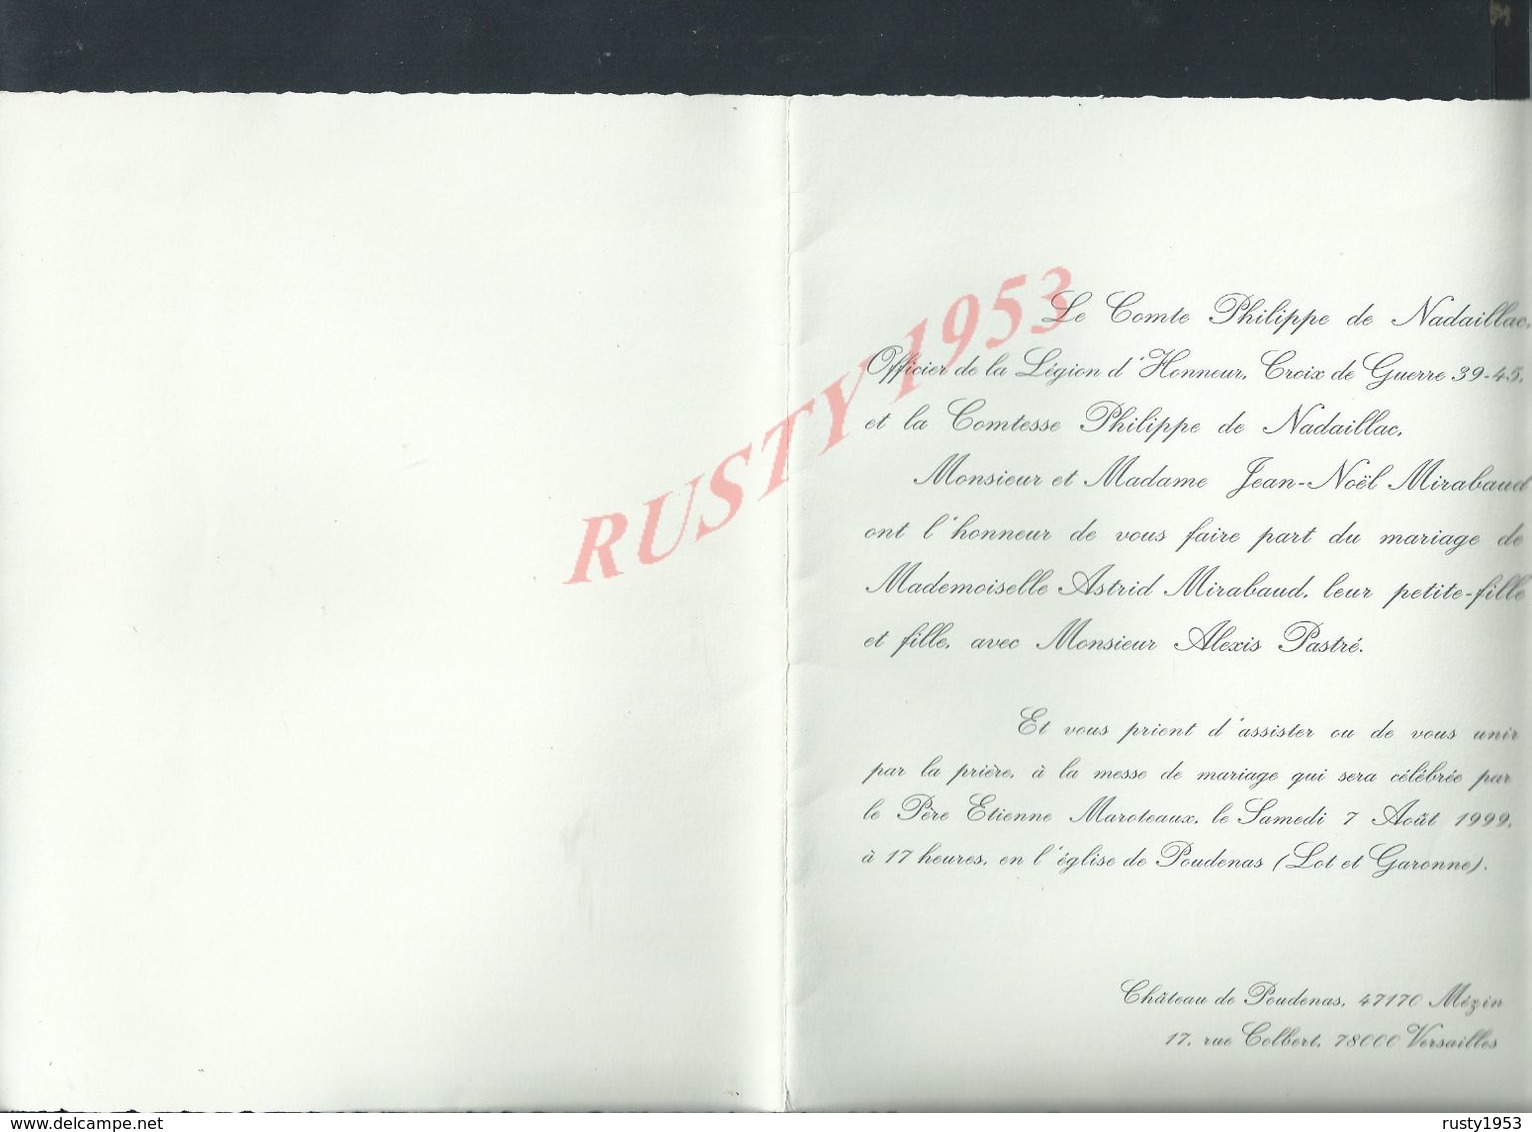 Le Comte Philippe de Nadaillac,
Officier de la Légion d'Honneur, Croix de Guerre 39-45,
et la Comtesse Philippe de Nadaillac,
Monsieur et Madame Jean-Noël Mirabaud
ont l'honneur de vous faire part du mariage de
Mademoiselle Astrid Mirabaud, leur petite-fille
et fille, avec Monsieur Alexis Pastré.
Et vous prient d'assister ou de vous unir
par la prière, à la messe de mariage qui sera célébrée par
le Père Etienne Maroteaux, le Samedi 7 Août 1999,
à 17 heures, en l'église de Poudenas (Lot et Garonne).
Château de Poudenas, 47170 Mézin
17, rue Colbert, 78000 Versailles
RUSTY 1953
www.delcampe.net
rusty1953